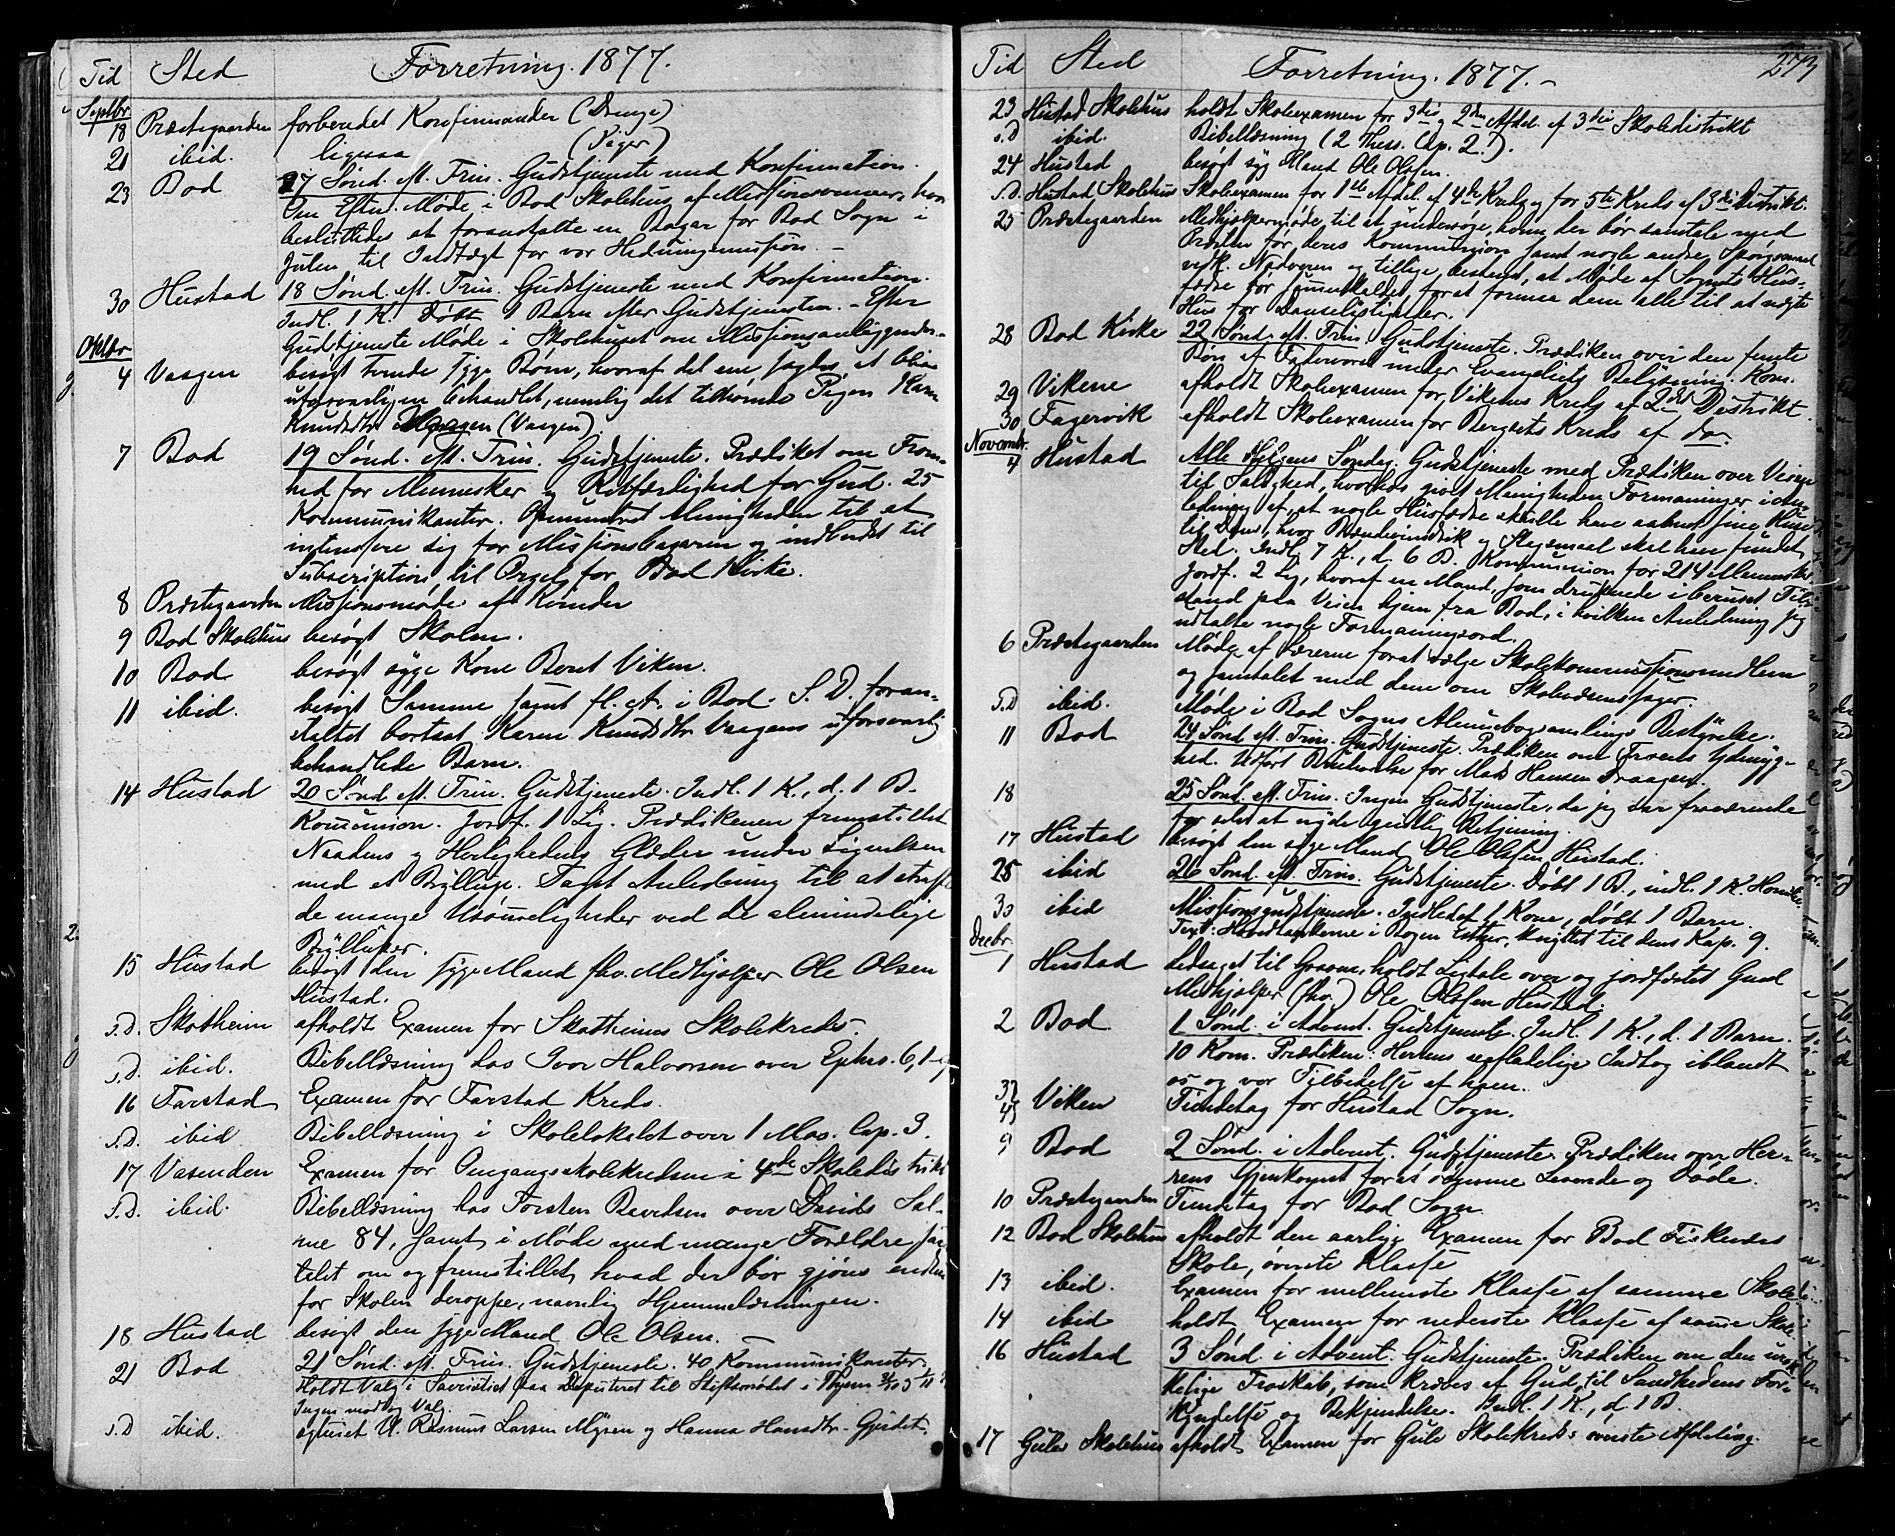 Tid Sted Forretning. 1877.
Septbr.
18 Præstegaarden forberedet Konfirmander (Drenge)
21 ibid. ligesaa (Piger)
23 Bod 17 Sønd. eft. Trin. Gudstjeneste med Konfirmation.
Om Efterm. Møde i Bod Skolehus af Missionsvenner, hvor
besluttedes at foranstalte en Bazar for Bod Sogn i
Julen til Indtægt for vor Hedningemission. –
30 Hustad 18 Sønd. eft. Trin. Gudstjeneste med Konfirmation.
Indl. 1 K. Døbt 1 Barn efter Gudstjenesten. – Efter
Gudstjeneste Møde i Skolehuset om Missionsanliggender.
Oktbr
4 Vaagen besøgt tvende syge Børn, hvoraf det ene sagdes at blive
uforsvarligen behandlet, nemlig det tilkomne Pigen Karen
Knudsdtr (Vaagen)
7 Bod 19 Sønd. eft. Trin. Gudstjeneste. Prædiket om From-
hed for Mennesker og Retfærdighed for Gud. 25
Kommunikanter. Opmuntret Menigheden til at
interessere sig for Missionsbazaren og indbudet til
Subscription til Orgel for Bod Kirke.
8 Præstegaarden Missionsmøde af Kvinder
9 Bod Skolehus besøgt Skolen.
10 Bod besøgt syge Kone Beret Viken.
11 ibid. besøgt Samme samt fl. A. i Bod. S. D. foran-
staltet bortsat Karen Knudsdtr Vaagens uforsvarlig
behandlede Barn.
14 Hustad 20 Sønd. eft. Trin. Gudstjeneste. Indl. 1 K., d. 1 B.
Kommunion. Jordf. 1 Lig. Prædikenen fremstillet
Naadens og Herlighedens Glæder under Lignelsen
med et Bryllup. Taget Anledning til at straffe
de mange Usømmeligheder ved de almindelige
Bylluper.
15 Hustad besøgt den syge Mand fhv. Medhjælper Ole Olsen
Hustad.
s.D. Skotheim afholdt Examen for Skotheims Skolekreds.
s.D. ibid. Bibellæsning hos Iver Halvorsen over Ephes. 6, 1-9
16 Farstad Examen for Farstad Kreds.
s.D. ibid Bibellæsning i Skolelokalet over 1 Mos. Cap. 3.
17 Vasenden Examen for Omgangsskolekredsen i 4de Skoledistrikt
s.D. ibid. Bibellæsning hos Torsten Baardsen over Davids Sal-
me 84, samt i Møde med mange Forældre sam-
talet om og fremstillet, hvad der bør gjøres
for Skolen deroppe, navnlig Hjemmelæsningen.
18 Hustad besøgt den syge Mand Ole Olsen. –
21 Bod 21 Sønd. eft. Trin. Gudstjeneste. 40 Kommunikanter.
Holdt Valg i Sacristiet paa Deputeret til Stiftsmødet i Thjem
Ingen mødte. Valg.
s.D ibid. Rasmus Larsen og Hanna Hansdtr.
Tid Sted Forretning. 1877. – 273
23 Hustad Skolehus holdt Skoleexamen for 3die og 2den Afdel. af 3die Skoledistrikt
s.D ibid. Bibellæsning (2 Thess. Cap. 2.).
24 Hustad besøgt syg Mand Ole Olsen.
s.D. Hustad Skolehus Skoleexamen for 1ste Afdel. af 4de Kreds og for 5te Kreds af 3die Distrikt.
25 Præstegaarden Medhjælpermøde, til at undersøge, hvem der bør samtale med
Præsten før deres Kommunion samt nogle andre Spørgsmaal
vedk. Nadveren og tillige bestemt, at Møde af Sognets Hus-
fædre bør sammenkaldes forat formaa dem alle til at nægte
Hus for Danselystigheder.
28 Bod Kirke 22 Sønd. eft. Trin. Gudstjeneste. Prædiken over den femte
Bøn af Fadervor under Evangeliets Belysning. Kom.
29 Vikene afholdt Skoleexamen for Vikenes Kreds af 2det Distrikt.
30 Fagervik afholdt Skoleexamen for Bergsets Kreds af do.
Novembr.
4 Hustad Alle Helgens Søndag. Gudstjeneste med Prædiken over Veien
til Salighed, hvorhos givet Menigheden Formaninger i An-
ledning af, at nogle Husfædre skulle have aabnet sine Huse
til Dans, hvor Brændevinsdrik og Slagsmaal skal have fundet
Sted. Indl. 7 K., d. 6 B. Kommunion for 214 Mennesker.
Jordf. 2 Lig, hvoraf en Mand, som druknede i beruset Til-
stand paa Veien hjem fra Bod, i hvilken Anledning jeg
udtalte nogle Formaningsord.
6 Præstegaarden Møde af Lærerne forat vælge Skolekommissionsmedlem
og samtalet med dem om Skolevæsenssager.
s.D ibid. Møde i Bod Sogns Almuebogsamlings Bestyrelse.
11 Bod 24 Sønd. eft. Trin. Gudstjeneste. Prædiken om Troens Ydmyg-
hed. Udført for Mads Hansen
18 25 Sønd. eft. Trin. Ingen Gudstjeneste, da jeg var fraværende
for selv at nyde geistlig Betjening.
17 Hustad besøgt den syge Mand Ole Olsen Hustad.
25 ibid 26 Sønd. eft. Trin. Gudstjeneste. Døbt 1 B., indl. 1 K.
30 ibid Missionsgudstjeneste. Indledet 1 Kone, døbt 1 Barn.
Text: Hovedtankerne i Bogen Esther, knyttet til dens Kap. 9.
Decbr.
1 Hustad Ledsaget til Graven, holdt Ligtale over og jordfæstet Gaml.
Medhjælper (fhv.) Ole Olsen Hustad.
2 Bod 1 Sønd. i Advent. Gudstjeneste. Indl. 1 K., d. 1 Barn.
10 Kom. Prædiken: Herrens Indtog iblandt
os og vor Tilbedelse af ham.
3 4 Viken Tiendetag for Hustad Sogn.
9 Bod 2 Sønd. i Advent. Gudstjeneste. Prædiken over Her-
rens Gjenkomst for at dømme Levende og Døde.
10 Præstegaarden Tiendetag for Bod Sogn
12 Bod Skolehus afholdt den aarlige Examen for Bod Fiskevers
Skole, øverste Klasse
13 ibid. Examen for mellemste Klasse af samme Skole
14 ibid holdt Examen for nederste Klasse af samme Skole
16 Hustad 3 Sønd. i Advent. Gudstjeneste. Prædiken om den
Troskab, som kræves af Gud til Sandhedens For-
kyndelse og Bekjendelse. Indl. 1 K., d. 1 B.
17 Gule Skolehus afholdt Examen for Gule Skolekreds øverste Afdeling.